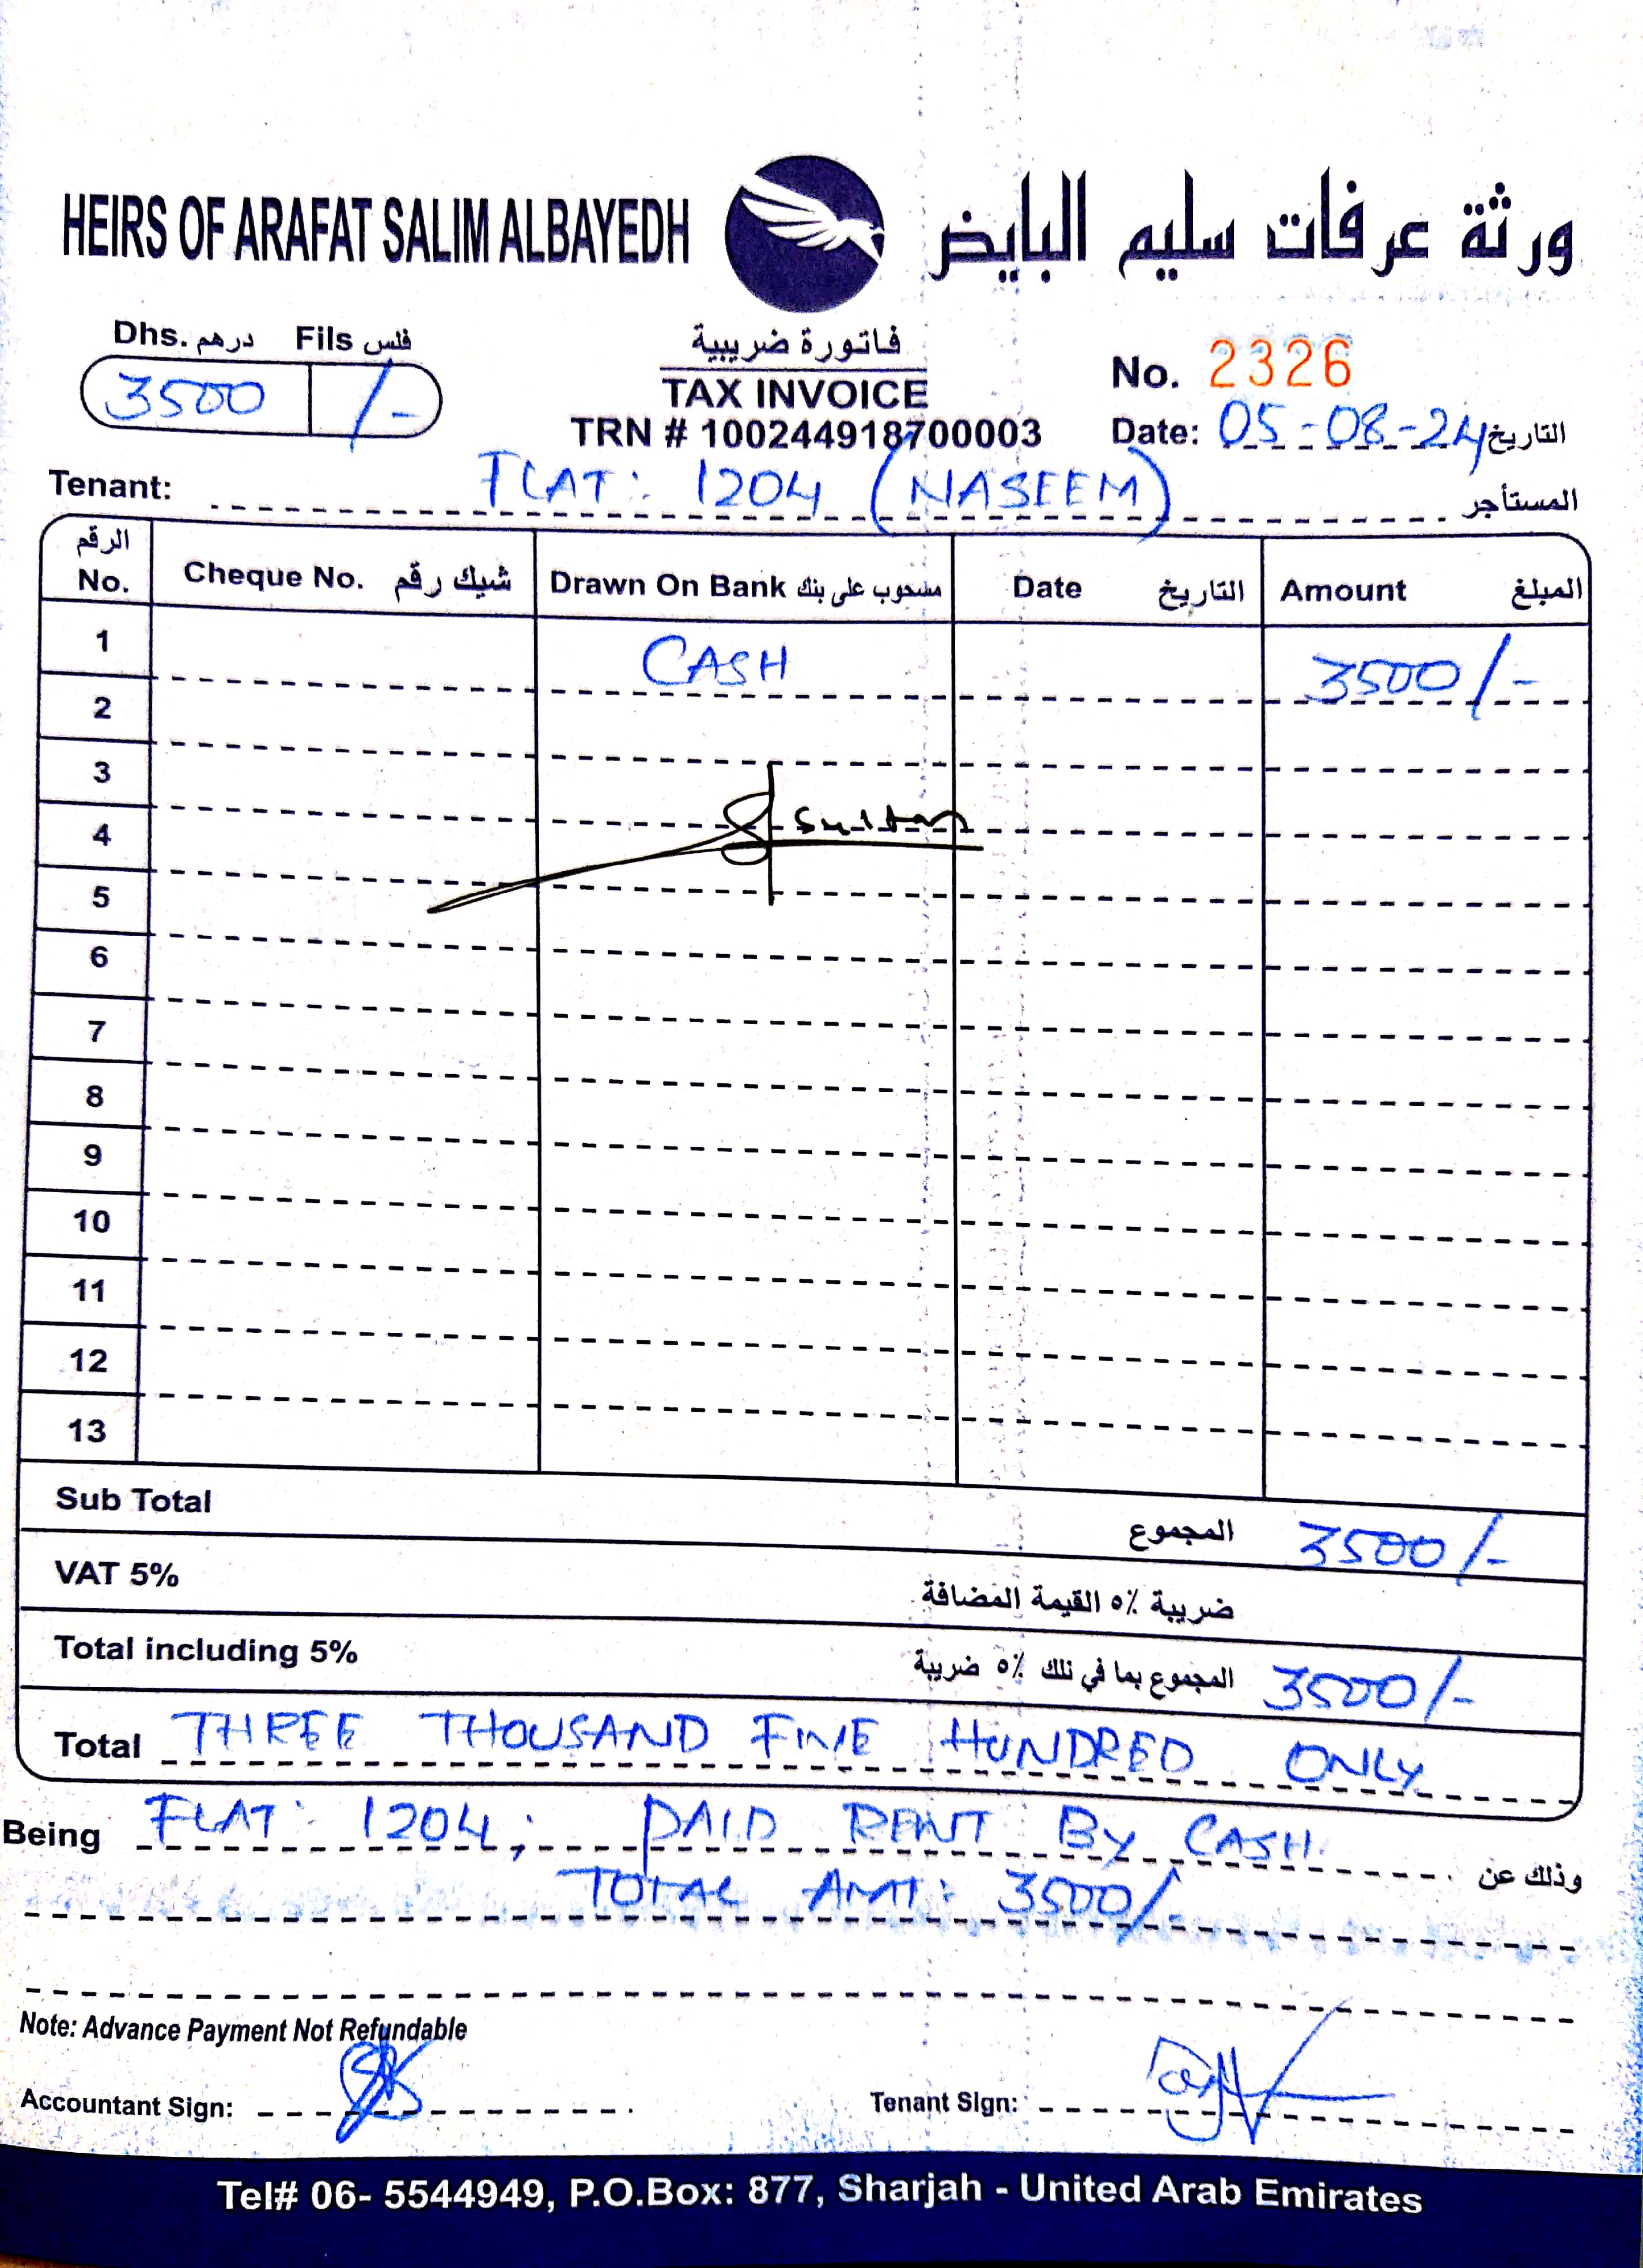 HEIRS OF ARAFAT SALIM ALBAYEDH ورثة عرفات سليم البايض
Dhs. درهم Fils فلس
3500 /-
فاتورة ضريبية
TAX INVOICE
TRN # 100244918700003
No. 2326
Date: 05-08-24 التاريخ
Tenant: FLAT: 1204 (NASEEM) المستأجر
الرقم No. Cheque No. شيك رقم Drawn On Bank مسحوب على بنك Date التاريخ Amount المبلغ
1 CASH 3500/-
2
3
4 Sultan
5
6
7
8
9
10
11
12
13
Sub Total المجموع 3500/-
VAT 5% ضريبة ٥٪ القيمة المضافة
Total including 5% المجموع بما في ذلك ٥٪ ضريبة 3500/-
Total THREE THOUSAND FIVE HUNDRED ONLY
Being FLAT: 1204, PAID RENT BY CASH. وذلك عن
TOTAL AMT: 3500/-
Note: Advance Payment Not Refundable
Accountant Sign: Tenant Sign:
Tel# 06- 5544949, P.O.Box: 877, Sharjah - United Arab Emirates